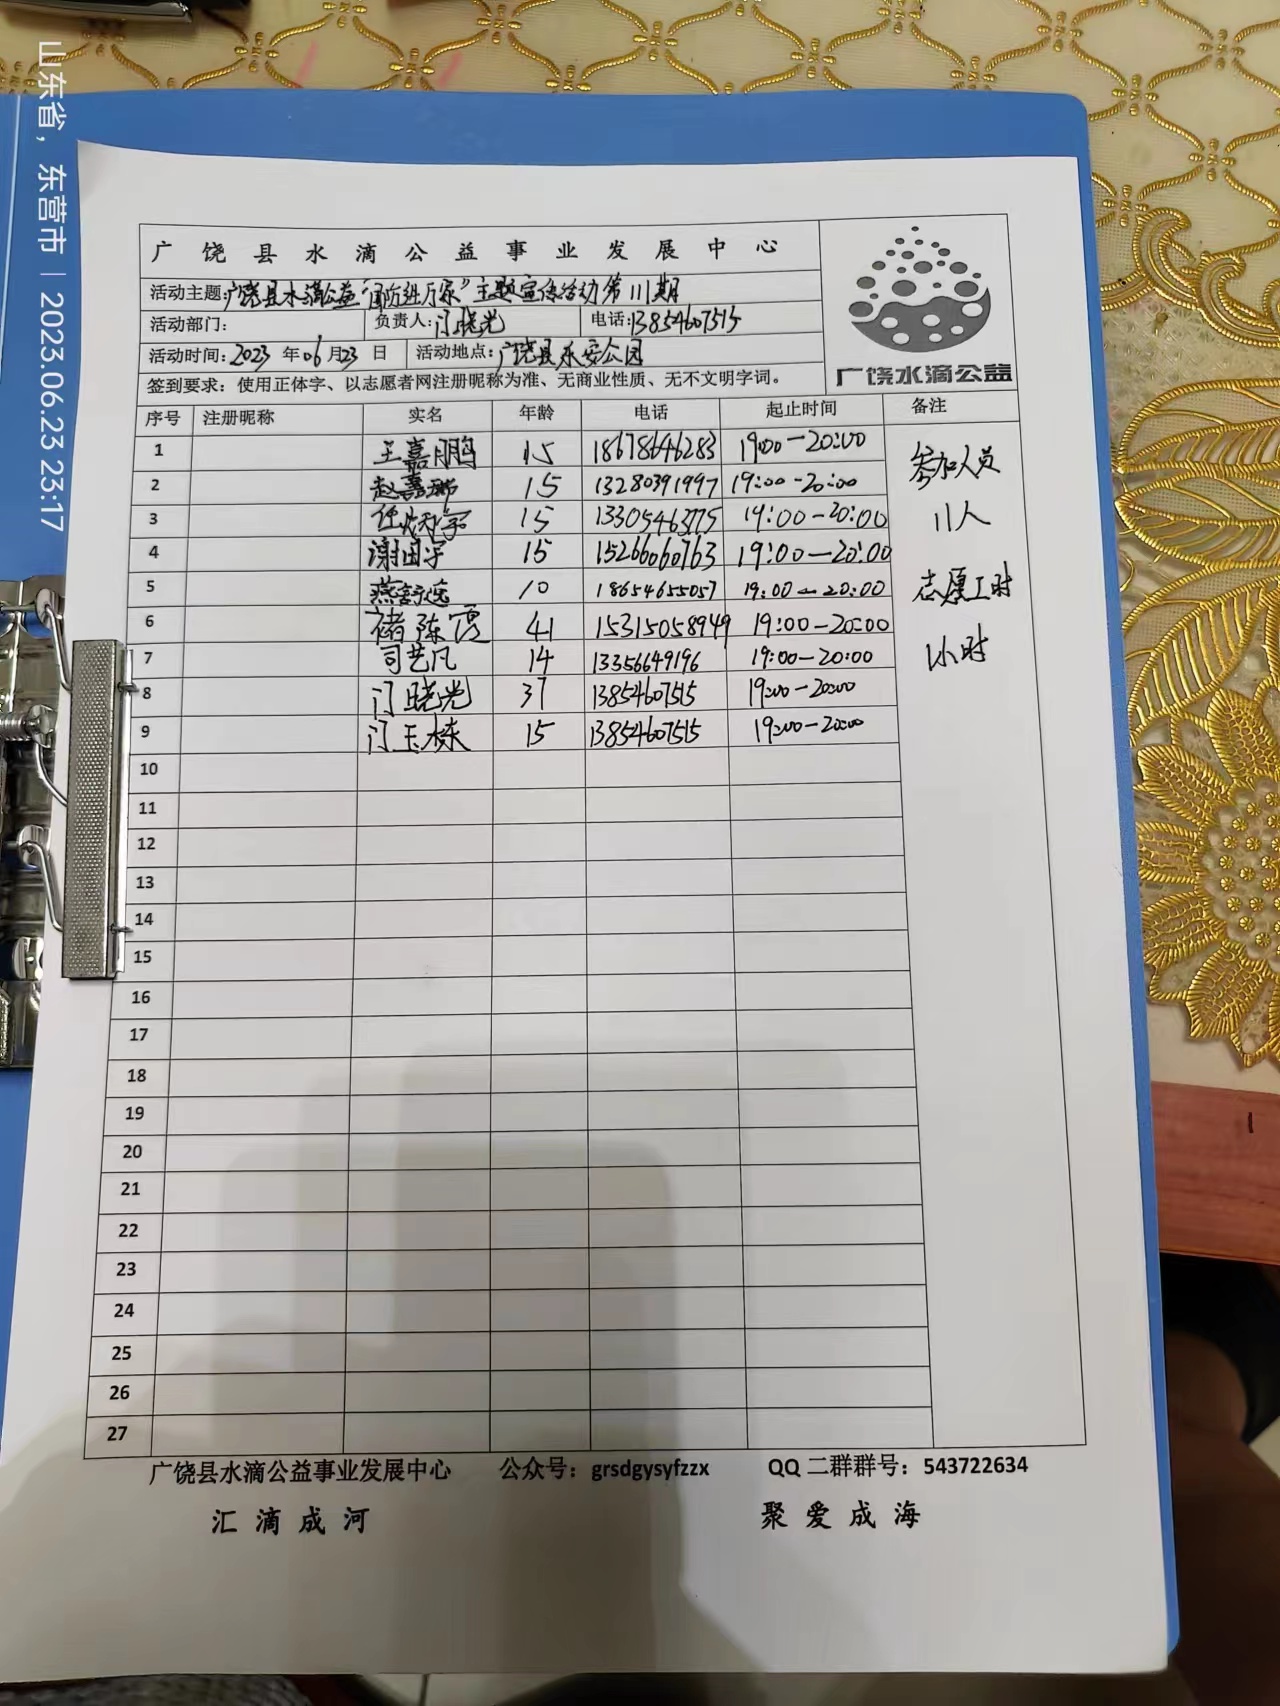 山东省，东营市 | 2023.06.23 23:17
广饶县水滴公益事业发展中心
活动主题:广饶县水滴公益"国防进万家"主题宣传活动第111期
活动部门: 负责人:门晓光 电话:13854607515
活动时间:2023年06月23日 活动地点:广饶县乐安公园
签到要求：使用正体字、以志愿者网注册昵称为准、无商业性质、无不文明字词。
广饶水滴公益
序号 注册昵称 实名 年龄 电话 起止时间 备注
1 王嘉鹏 15 18678646283 19:00-20:00
2 赵嘉 15 13280391997 19:00-20:00
3 任 宇 15 13305463775 19:00-20:00
4 谢国宇 15 15266060763 19:00-20:00
5 燕 10 18654655057 19:00-20:00
6 褚陈霞 41 15315058949 19:00-20:00
7 司艺凡 14 13356649196 19:00-20:00
8 门晓光 37 13854607515 19:00-20:00
9 门玉栋 15 13854607515 19:00-20:00
参加人员
11人
志愿工时
1小时
10
11
12
13
14
15
16
17
18
19
20
21
22
23
24
25
26
27
广饶县水滴公益事业发展中心 公众号：grsdgysyfzzx QQ二群群号：543722634
汇滴成河 聚爱成海